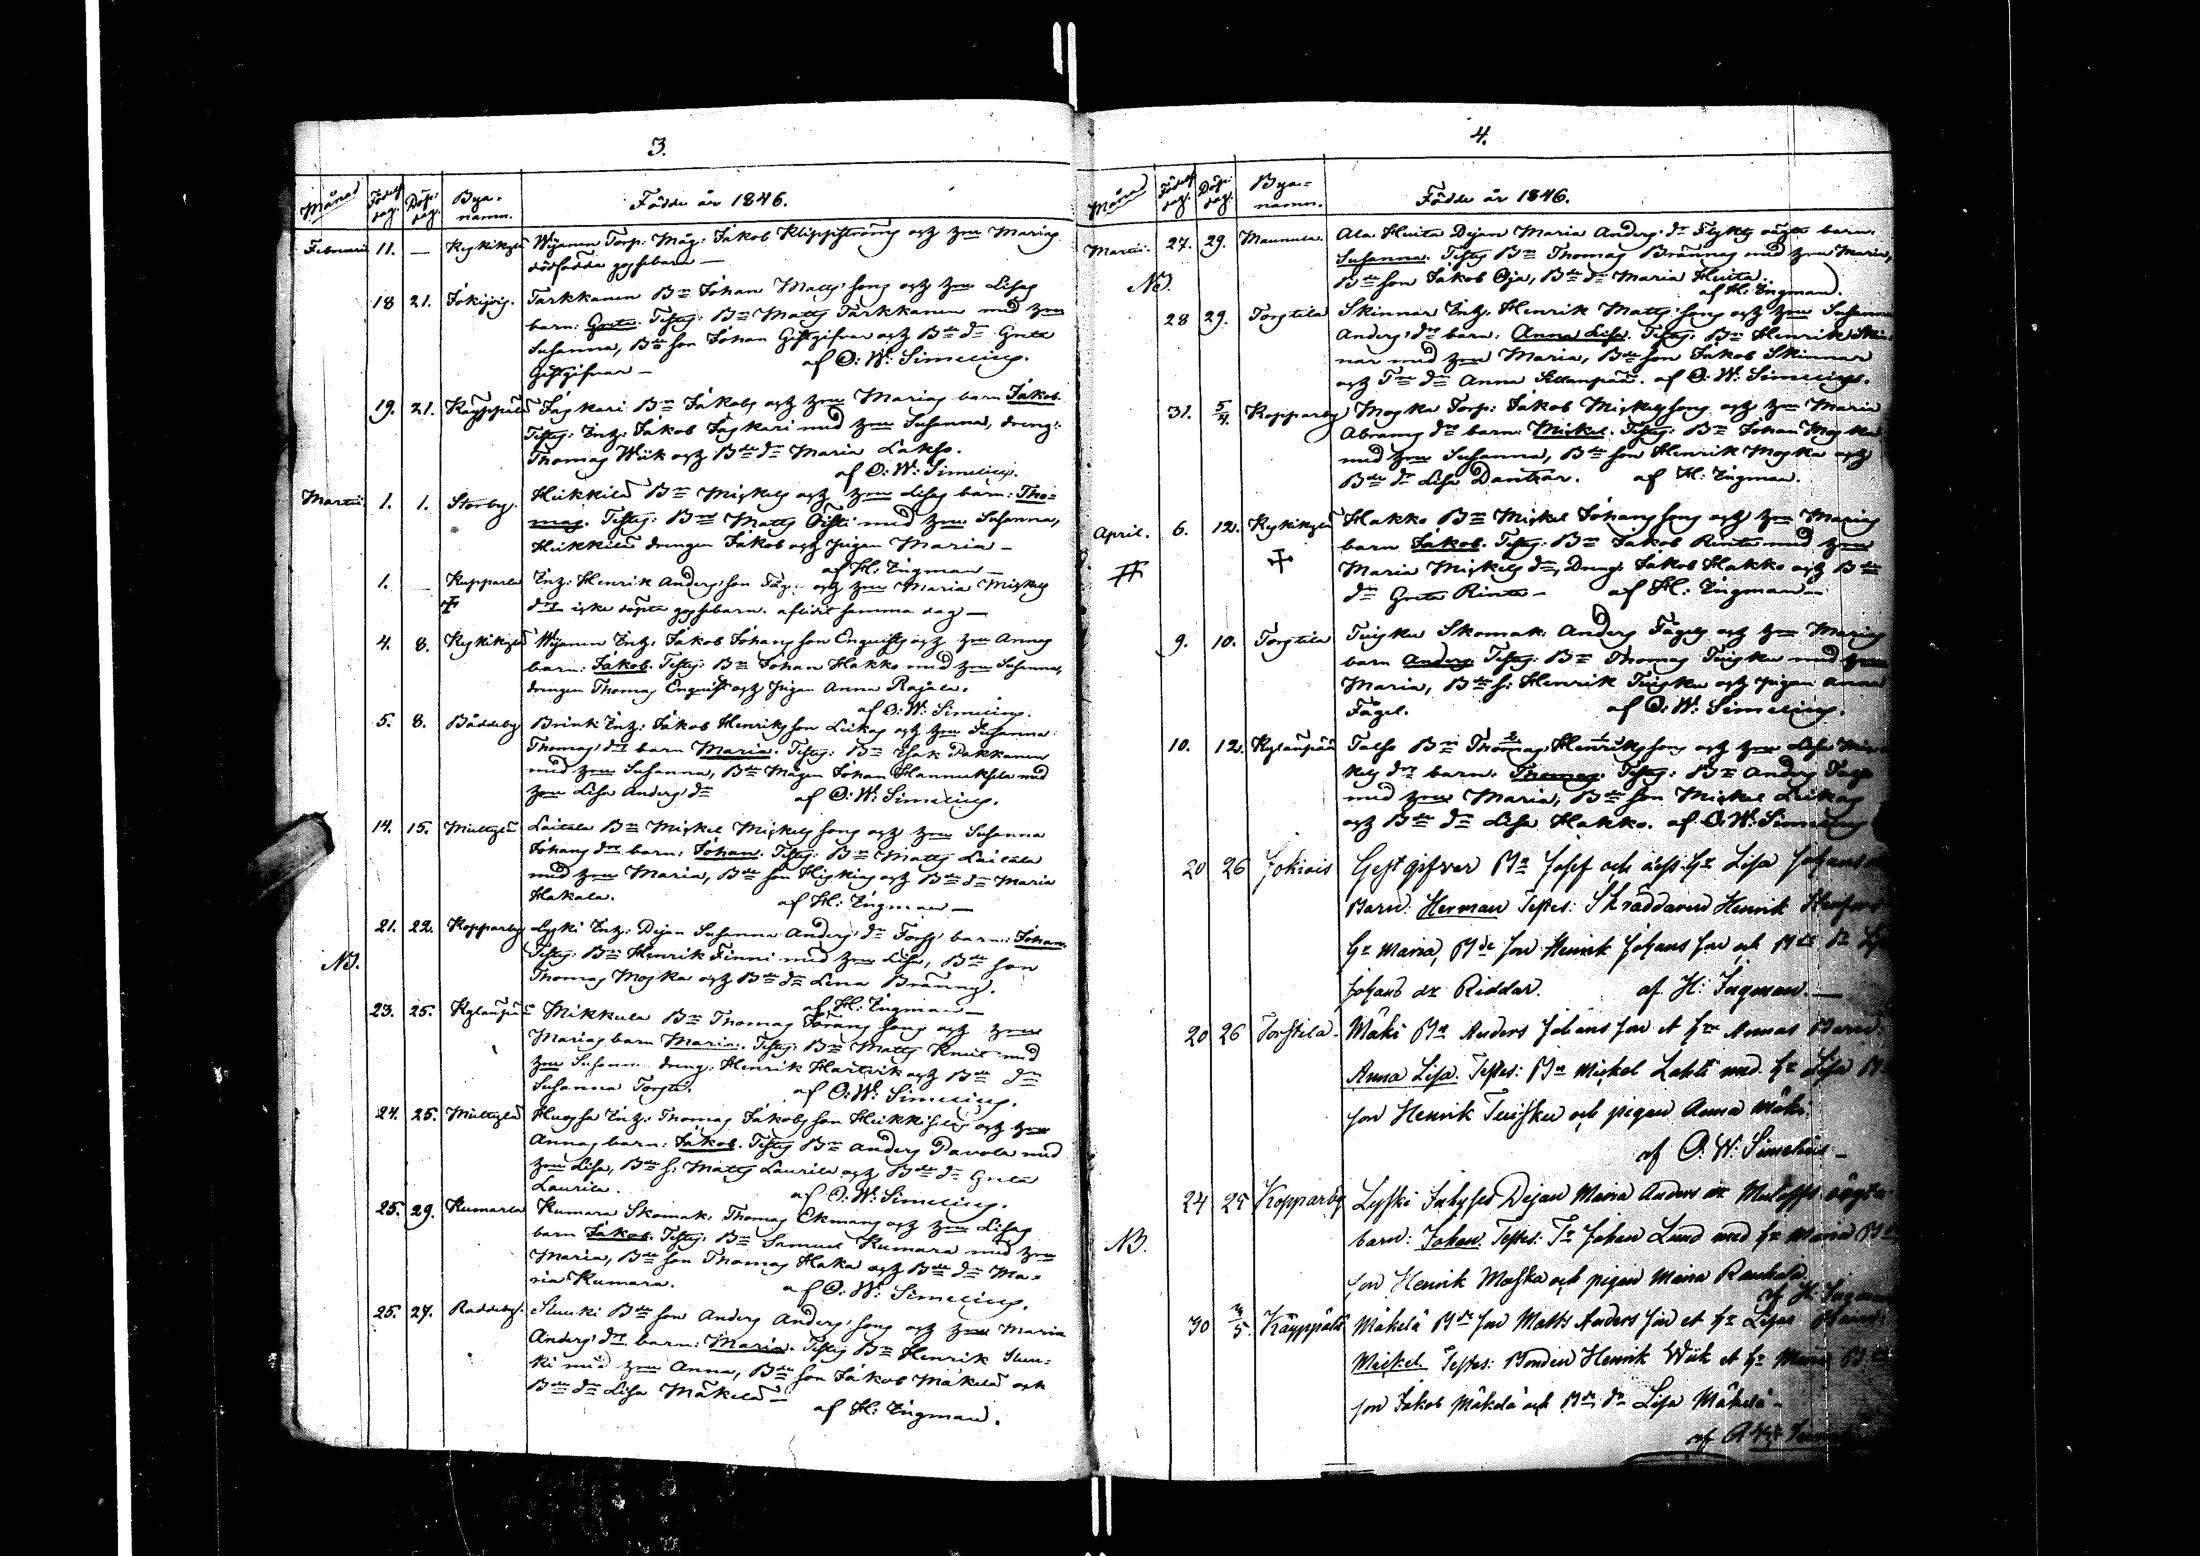 3.
Månad Födelse dag. Döp: dag. Bya-namn. Födde år 1846.
Februarii 11. — Keskikylä Wijanen Torp. Måg: Jakob Klippströms och hru Marias
dödfödda gossebarn —
18 21. Jokipois. Tarkkanen Bn Johan Matts' sons och hru Lisas
barn: Greta. Testes: Bn Matts Tarkkanen med hru
Susanna, Bde son Johan Gästgifvar och Bde dr Greta
Gästgifvar — af O: W: Simelius.
19. 21. Käyppälä Jäskari Bn Jakobs och hru Marias barn Jakob.
Testes: Inh: Jakob Jäskari med hru Susanna, dreng:
Thomas Wiik och Bde dr Maria Lakso.
af O: W: Simelius.
Martii 1. 1. Storby. Heikkilä Bn Mickels och hru Lisas barn: Tho-
mas. Testes: Bn Matts Gisti med hru Susanna,
Heikkilä drengen Jakob och pigan Maria —
af H: Ingman —
1. — Kopparla Inh: Henrik Anders' son och hru Maria Mickels
drs icke döpta gossebarn. aflidit samma dag —
4. 8. Keskikylä Wijanen Inh: Jakob Johans son Enquists och hru Annas
barn: Jakob. Testes: Bn Johan Hakko med hru Susanna,
drengen Thomas Enquist och pigan Anna Rajala.
af O: W: Simelius.
5. 8. Båddeby Brink Inh: Jakob Henriks son Leikas och hru Susanna
Thomas' drs barn Maria. Testes: Bn Isak Pakkanen
med hru Susanna, Bde Mågen Johan Hannuksela med
hru Lisa Anders' dr af O: W: Simelius.
14. 15. Miettylä Laitala Bn Mickel Mickels sons och hru Susanna
Johans drs barn: Johan. Testes: Bn Matts Laitala
med hru Maria, Bde son Hiskias och Bde dr Maria
Hakala. af H: Ingman —
21. 22. Kopparby Lyski Inh: Dejan Susanna Anders' dr Forss' barn: Johan
NB. Testes: Bn Henrik Finni med hru Lisa, Bde son
Thomas Moska och Bde dr Lena Bränns.
af H: Ingman —
23. 25. Kylänpää Mikkula Bn Thomas Görans sons och hru
Marias barn Maria. Testes: Bn Matts Knuit med
hru Susanna dreng: Henrik Hartvik och Bde dr
Susanna af O: W: Simelius.
24. 25. Miettylä Huossa Inh: Thomas Jakobs son Heikkiläs och hru
Annas barn: Jakob. Testes Bn Anders Pavola med
hru Lisa, Bde s: Matts Laurila och Bde dr Greta
Laurila. af O: W: Simelius.
25. 29. Kumarla Kumara Skomak: Thomas Ekmans och hru Lisas
barn Jakob. Testes: Bn Samuel Kumara med hru
Maria, Bde son Thomas Haka och Bde dr Ma-
ria Kumara. af O: W: Simelius.
25. 27. Raddeby. Sluuki Bde son Anders Anders' sons och hru Maria
Anders' drs barn: Maria. Testes Bn Henrik Sluu-
ki med hru Anna, Bde son Jakob Mäkelä och
Bde dr Lisa Mäkelä —
af H: Ingman.
4.
Månad Födelse dag. Döp: dag. Bya-namn. Födde år 1846.
Martii. 27. 29. Maunula. Ala Huita Dejan Maria Anders' dr Flykts oägta barn:
Susanna. Testes Bn Thomas Brännas med hru Maria,
NB. Bde son Jakob Oja, Bde dr Maria Huita.
af H: Ingman.
28 29. Torstila Skinnar Inh: Henrik Matts' sons och hru Susanna
Anders' drs barn: Anna Lisa. Testes: Bn Henrik Skin-
nar med hru Maria, Bde son Jakob Skinnar
och Tn dr Anna Sillanpää. af O: W: Simelius.
31. 5/4. Kopparby Moska Torp: Jakob Mickels sons och hru Maria
Abrams drs barn: Mickel. Testes: Bn Johan Moska
med hru Susanna, Bde son Henrik Moska och
Bde dr Lisa Dantzar. af H: Ingman.
April. 6. 12. Keskikylä Hakko Bn Mickel Johans sons och hru Marias
barn Jakob. Testes: Bn Jakob Rinta med hru
Maria Mickels dr, Dreng: Jakob Hakko och Bde
dr Greta Rinta — af H: Ingman —
9. 10. Torstila Tuisku Skomak: Anders Fågels och hru Marias
barn Anders. Testes: Bn Thomas Tuisku med hru
Maria, Bde s: Henrik Tuisku och pigan Anna
Fågel. af O: W: Simelius.
10. 12. Kylänpää Talso Bn Thomas Henriks sons och hru Lisa Mic-
kels drs barn: Thomas. Testes: Bn Anders
med hru Maria, Bde son Mickel Leikas
och Bde dr Lisa Hakko. af O: W: Simelius
20 26 Jokipois Gestgifvar Bn Josef och dess Hu Lisa Johans
Barn: Herman Testes: Skräddaren Henrik
Hu Maria, Bde son Henrik Johans son och Bde dr
Johans dr Riddar. af H: Ingman. —
20 26 Torstila. Mäki Bn Anders Johans son et hru Annas Barn:
Anna Lisa. Testes: Bn Mickel Lahti med hu Lisa B
son Henrik Tuisku och pigan Anna Mäki.
af O. W: Simelius —
24 25 Kopparby Lyski Inhyses Dejan Maria Anders dr oägta
NB. barn: Johan. Testes: Tn Johan Lund med hu Maria Bde
son Henrik Moska och pigan Maria
af H: Ingman
30 3/5. Käyppälä Mäkelä Bde son Matts Anders son et hu Lisas Barn:
Mickel. Testes: Bonden Henrik Wiik et hu Maria Bde
son Jakob Mäkelä och Bde dr Lisa Mäkelä —